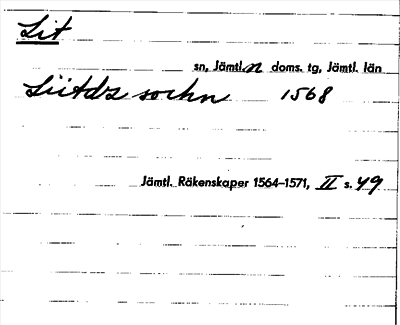 Lit
sn, Jämtl. n doms. tg, Jämtl. län
Liitdz sochn 1568
Jämtl. Räkenskaper 1564–1571, II s. 49